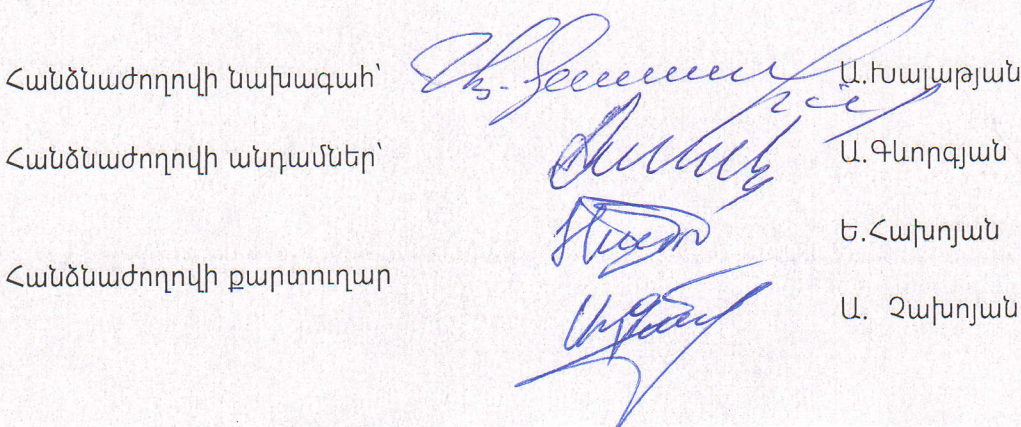 Հանձնաժողովի նախագահ՝ Ա.Խալաթյան
Հանձնաժողովի անդամներ՝ Ա.Գևորգյան
Ե.Հախոյան
Հանձնաժողովի քարտուղար
Ա. Չախոյան